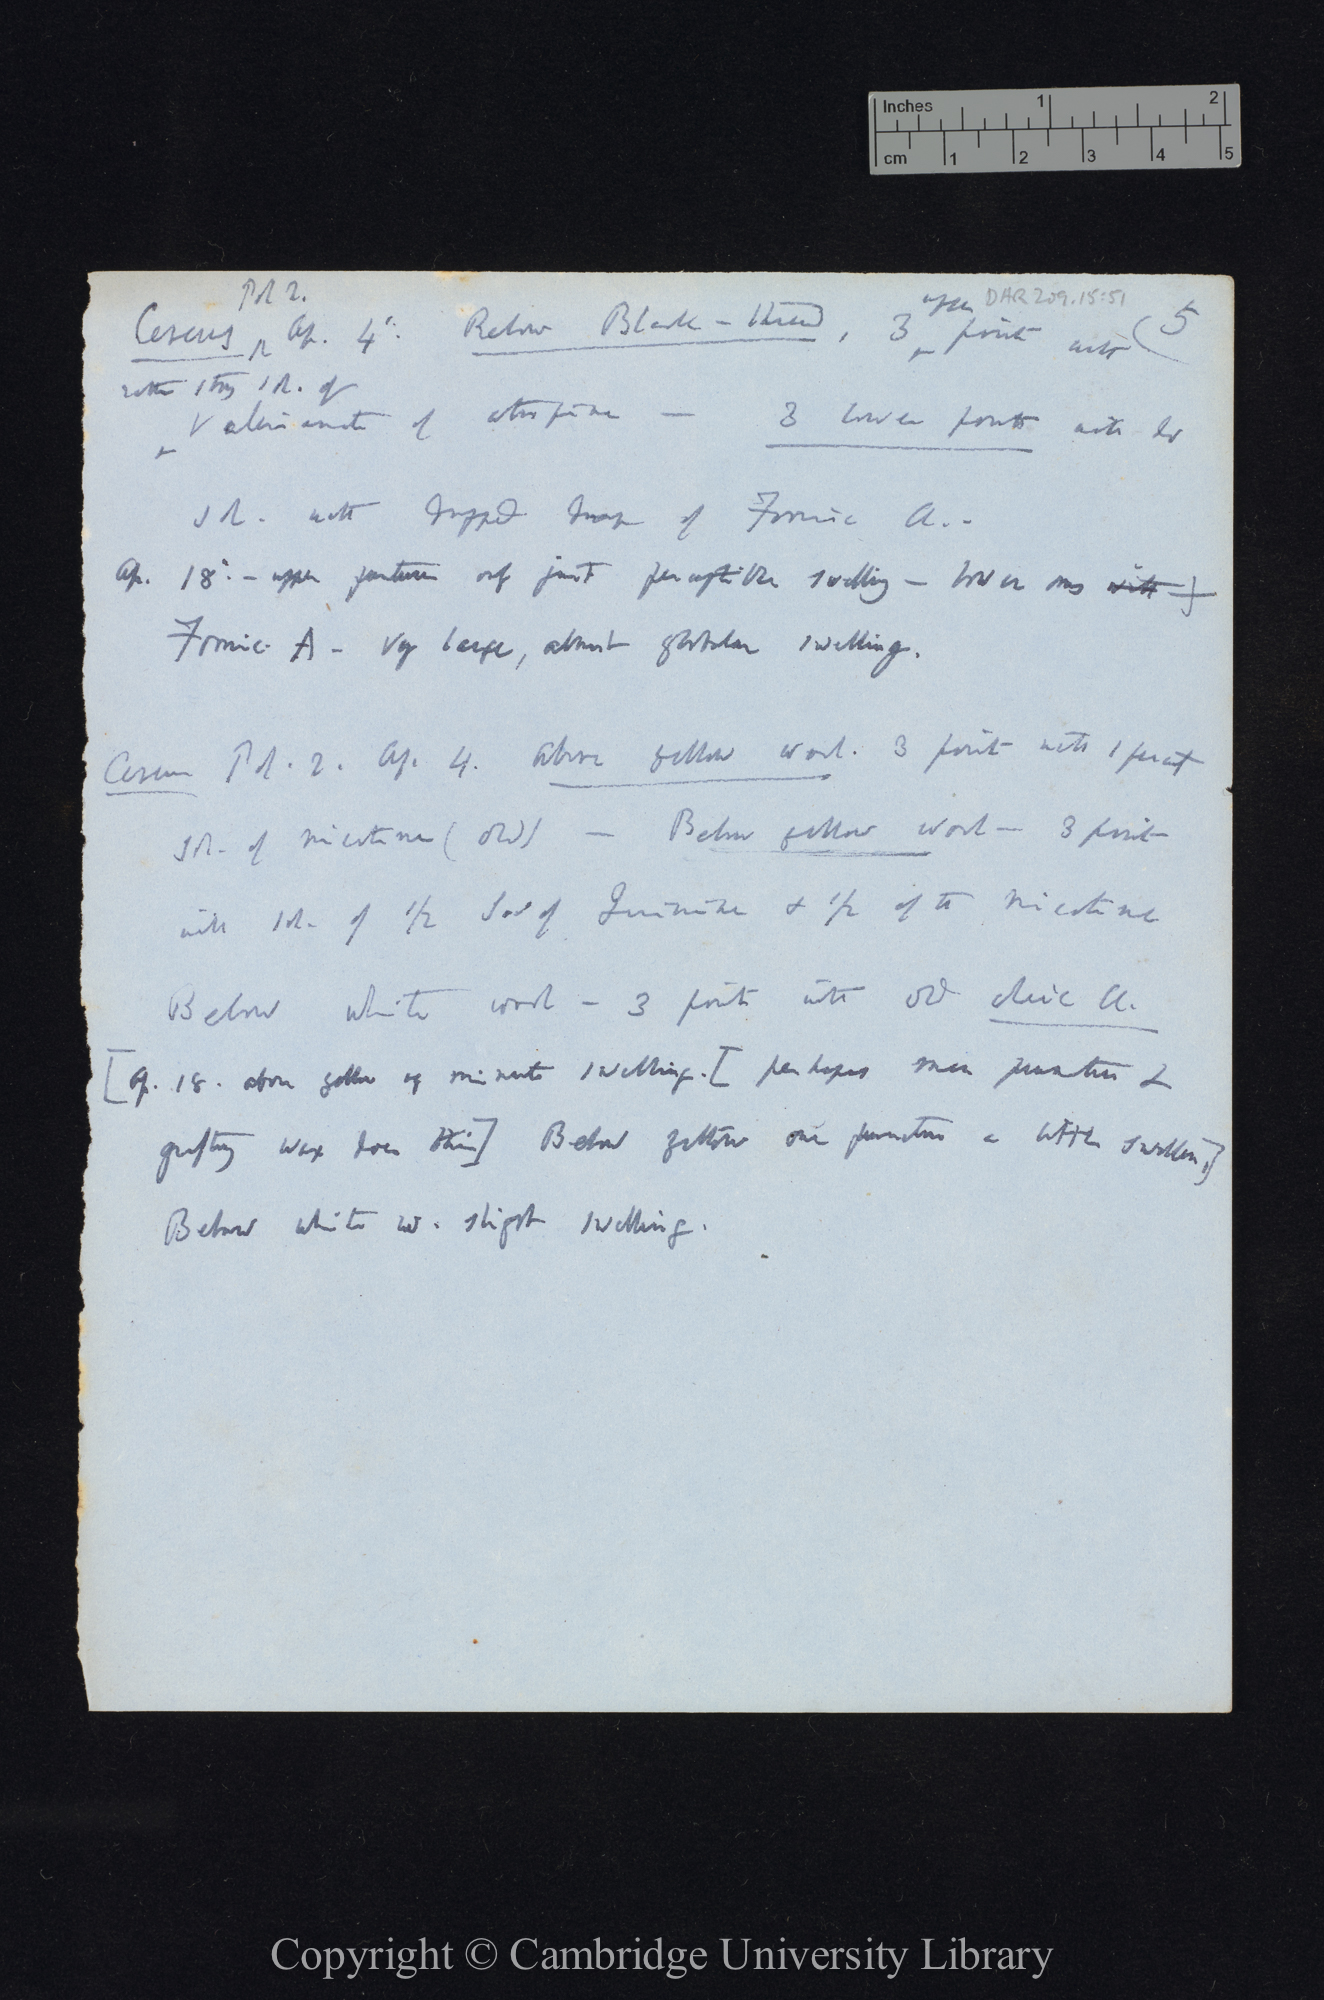 Inches 1 2
cm 1 2 3 4 5
DAR 209.15:51
Pot 2. upper
Cereus Ap. 4°. Below Black-thread, 3 points with (5
rather strong sol. of
Valerianate of atropine — 3 lower points with do
sol. with dipped drop of Formic A.-
Ap. 18°.- upper punctures only just perceptible swelling — lower ones with
Formic A - vy large, almost globular swelling.
Cereus Pot. 2. Ap. 4. above yellow wool. 3 points with 1 per cent
sol. of nicotine (old) — Below yellow wool — 3 points
with sol. of 1/2 Sol of Quinine & 1/2 of the nicotine
Below white wool — 3 points with old oleic A.
[Ap. 18. above yellow vy minute swelling. [perhaps mere puncture &
grafting wax does this] Below yellow one puncture a little swollen]
Below white w. slight swelling.
Copyright © Cambridge University Library